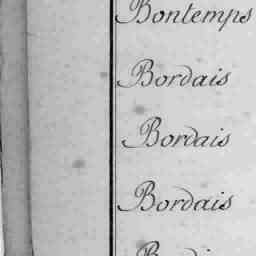 Bontemps
Bordais
Bordais
Bordais